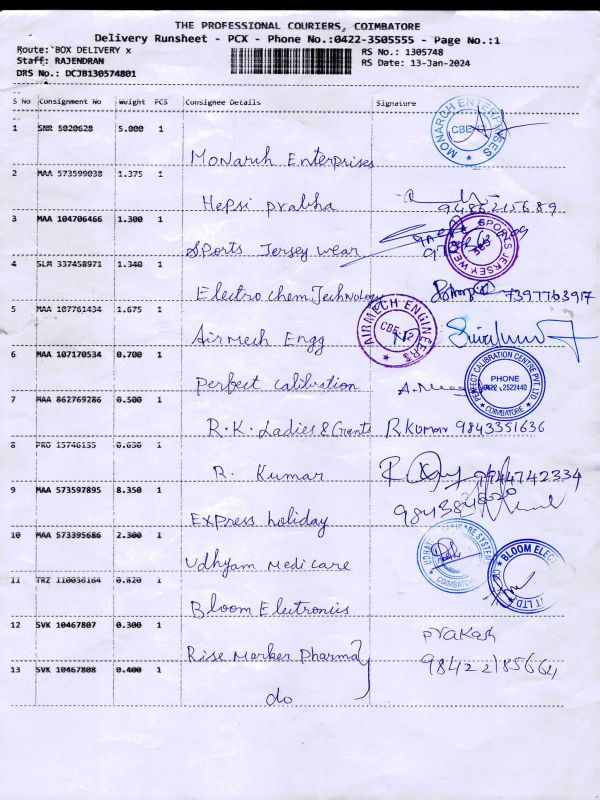 THE PROFESSIONAL COURIERS, COIMBATORE
Delivery Runsheet - PCX - Phone No.:0422-3505555 - Page No.:1
Route: BOX DELIVERY x
Staff: RAJENDRAN
DRS No.: DCJB130574801
RS No.: 1305748
RS Date: 13-Jan-2024
S No Consignment No Weight PCS Consignee Details Signature
1 SNR 5020628 5.000 1
Monarch Enterprises
MONARCH ENTERPRISES
2 MAA 573599038 1.375 1
Hepsi prabha 9486215689
3 MAA 104706466 1.300 1
Sports Jersey wear
SPORTS JERSEY WEAR
4 SLM 337458971 1.340 1
Electro chem Technology 7397763917
5 MAA 107761434 1.675 1
Airmech Engg
AIRMECH ENGINEERS
6 MAA 107170534 0.700 1
perfect calibration
PERFECT CALIBRATION CENTRE PVT. LTD
PHONE
0422 2522440
COIMBATORE
7 MAA 862769286 0.500 1
R.K. Ladies & Gents R Kumar 9843351636
8 PRG 15746135 0.630 1
R. Kumar 9944742334
9 MAA 573597895 8.350 1
Express holiday
10 MAA 573395686 2.300 1
Udhyam Medicare
COIMBATORE
11 TRZ 110036164 0.820 1
Bloom Electronics
BLOOM ELEC
12 SVK 10467807 0.300 1
Rise Marker Pharma
Prakash
98422185664
13 SVK 10467808 0.400 1
do